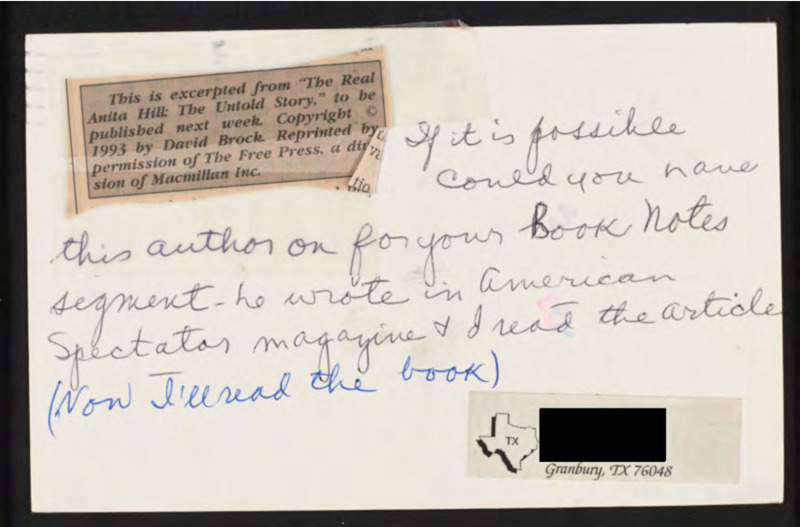 This is excerpted from "The Real
Anita Hill: The Untold Story," to be
published next week. Copyright ©
1993 by David Brock. Reprinted by
permission of The Free Press, a divi-
sion of Macmillan Inc.
If it is possible
could you have
this author on for your Book Notes
segment - he wrote in American
Spectator magazine & I read the article
(Now I'll read the book)
TX
Granbury, TX 76048